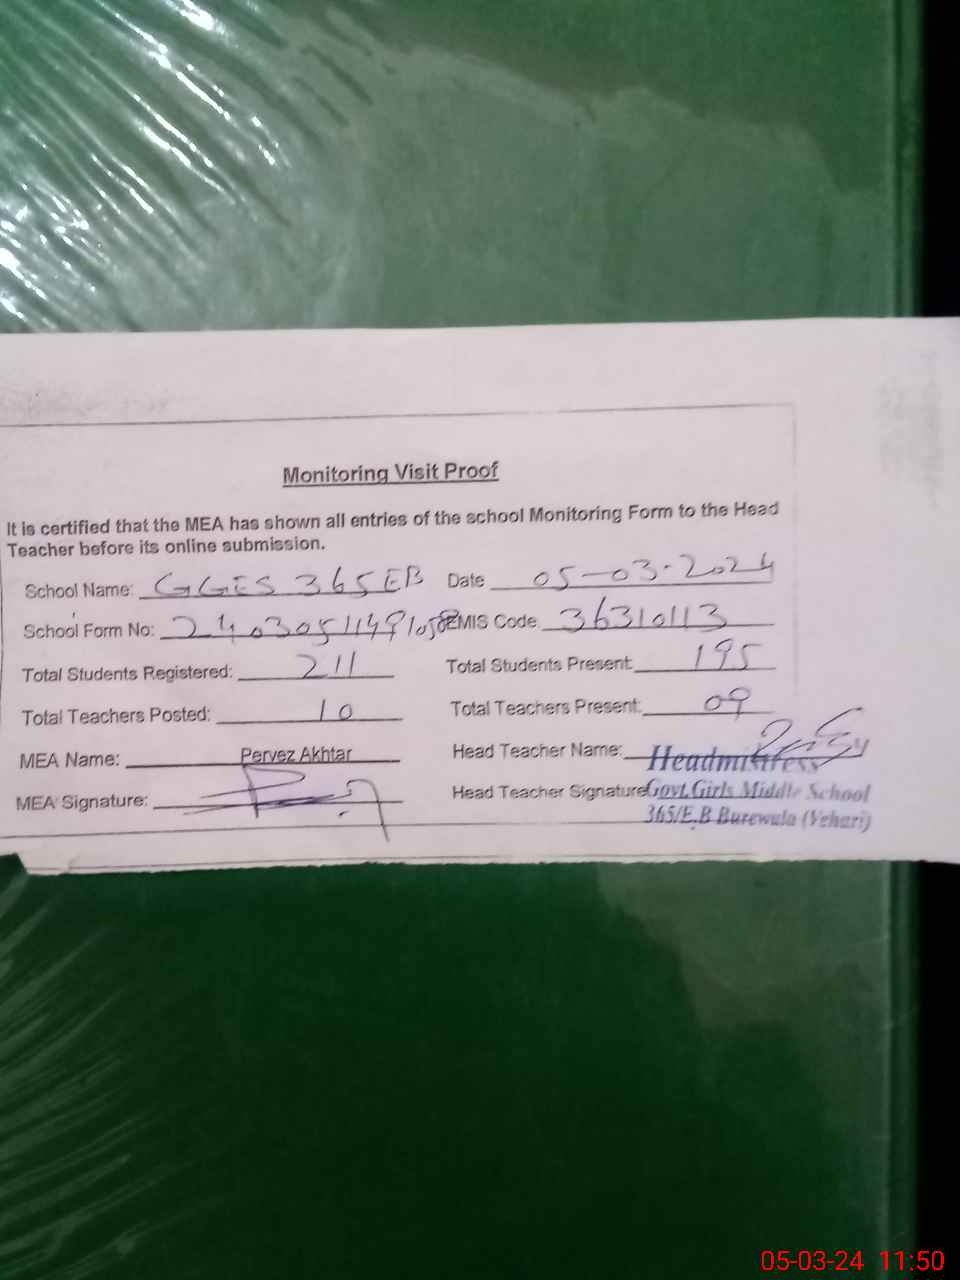 Monitoring Visit Proof
It is certified that the MEA has shown all entries of the school Monitoring Form to the Head
Teacher before its online submission.
School Name: GGES 365 EB Date 05-03-2024
School Form No: EMIS Code 36310113
Total Students Registered: 211 Total Students Present: 195
Total Teachers Posted: 10 Total Teachers Present: 09
MEA Name: Pervez Akhtar Head Teacher Name:
Headmistress
MEA Signature: Head Teacher Signature
Govt. Girls Middle School
365/E.B Burewala (Vehari)
05-03-24 11:50